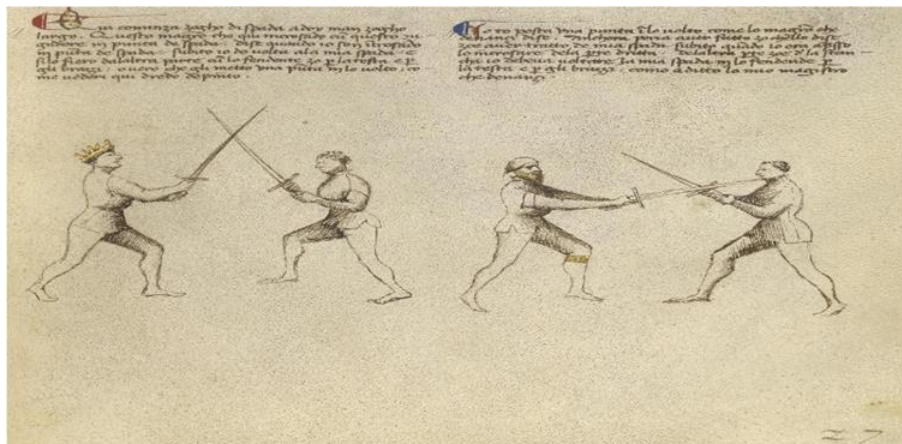 Qui comenza zogho di spada a doy man zogho
largo. Questo magistro che qui incrosado cum questo zu
gadore in punta de spada dise quando io son incrosado
in punta de spada subito io do volta ala mia spada e
si lo fiero dalaltra parte cum lo fendente zo p la testa e p
gli brazzi overo che gli metto una punta in lo volto, co
me vederi qui dredo depinto.
Io to posta una punta in lo volto come lo magistro che
denanci dise. Anchora poria aver fatto zo chello dise
zoe aver tratto de mia spada subito quando io era apresso
lo incrosare dela parte dritta. Delaltra parte zoe de la stan
cha io debeva voltare la mia spada in lo fendente p
la testa e p gli brazzi, como a ditto lo mio magistro
che denanci.